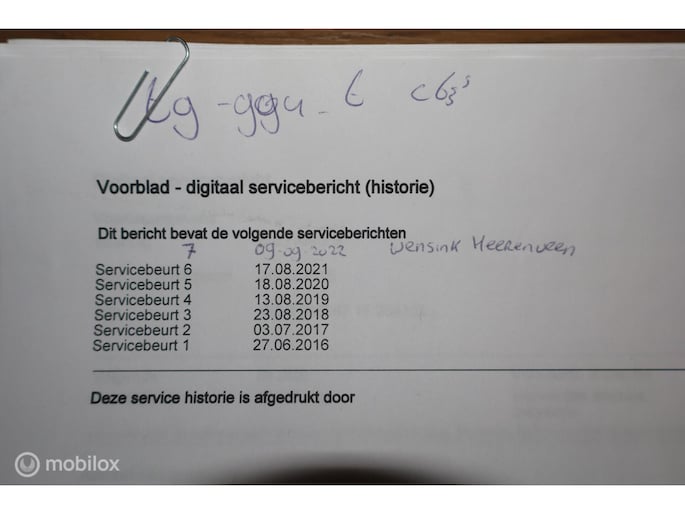 tg-ggu-t c63s
Voorblad - digitaal servicebericht (historie)
Dit bericht bevat de volgende serviceberichten
7 09-09-2022 Wensink Heerenveen
Servicebeurt 6 17.08.2021
Servicebeurt 5 18.08.2020
Servicebeurt 4 13.08.2019
Servicebeurt 3 23.08.2018
Servicebeurt 2 03.07.2017
Servicebeurt 1 27.06.2016
Deze service historie is afgedrukt door
mobilox